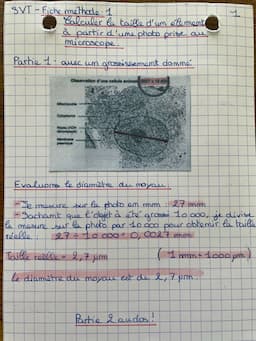 SVT - Fiche méthode 1
1
Calculer la taille d'un élément
à partir d'une photo prise au
microscope.
Partie 1 : avec un grossissement donné
Observation d'une cellule animale
Mitochondrie
Cytoplasme
Noyau
Membrane
Evaluons le diamètre du noyau
Je mesure sur la photo en mm : 27 mm
Sachant que l'objet a été grossi 10 000, je divise
la mesure sur la photo par 10 000 pour obtenir la taille
réelle : 27 ÷ 10 000 = 0,0027 mm
Taille réelle = 2,7 µm (1 mm = 1000 µm)
Le diamètre du noyau est de 2,7 µm.
Partie 2 au dos!